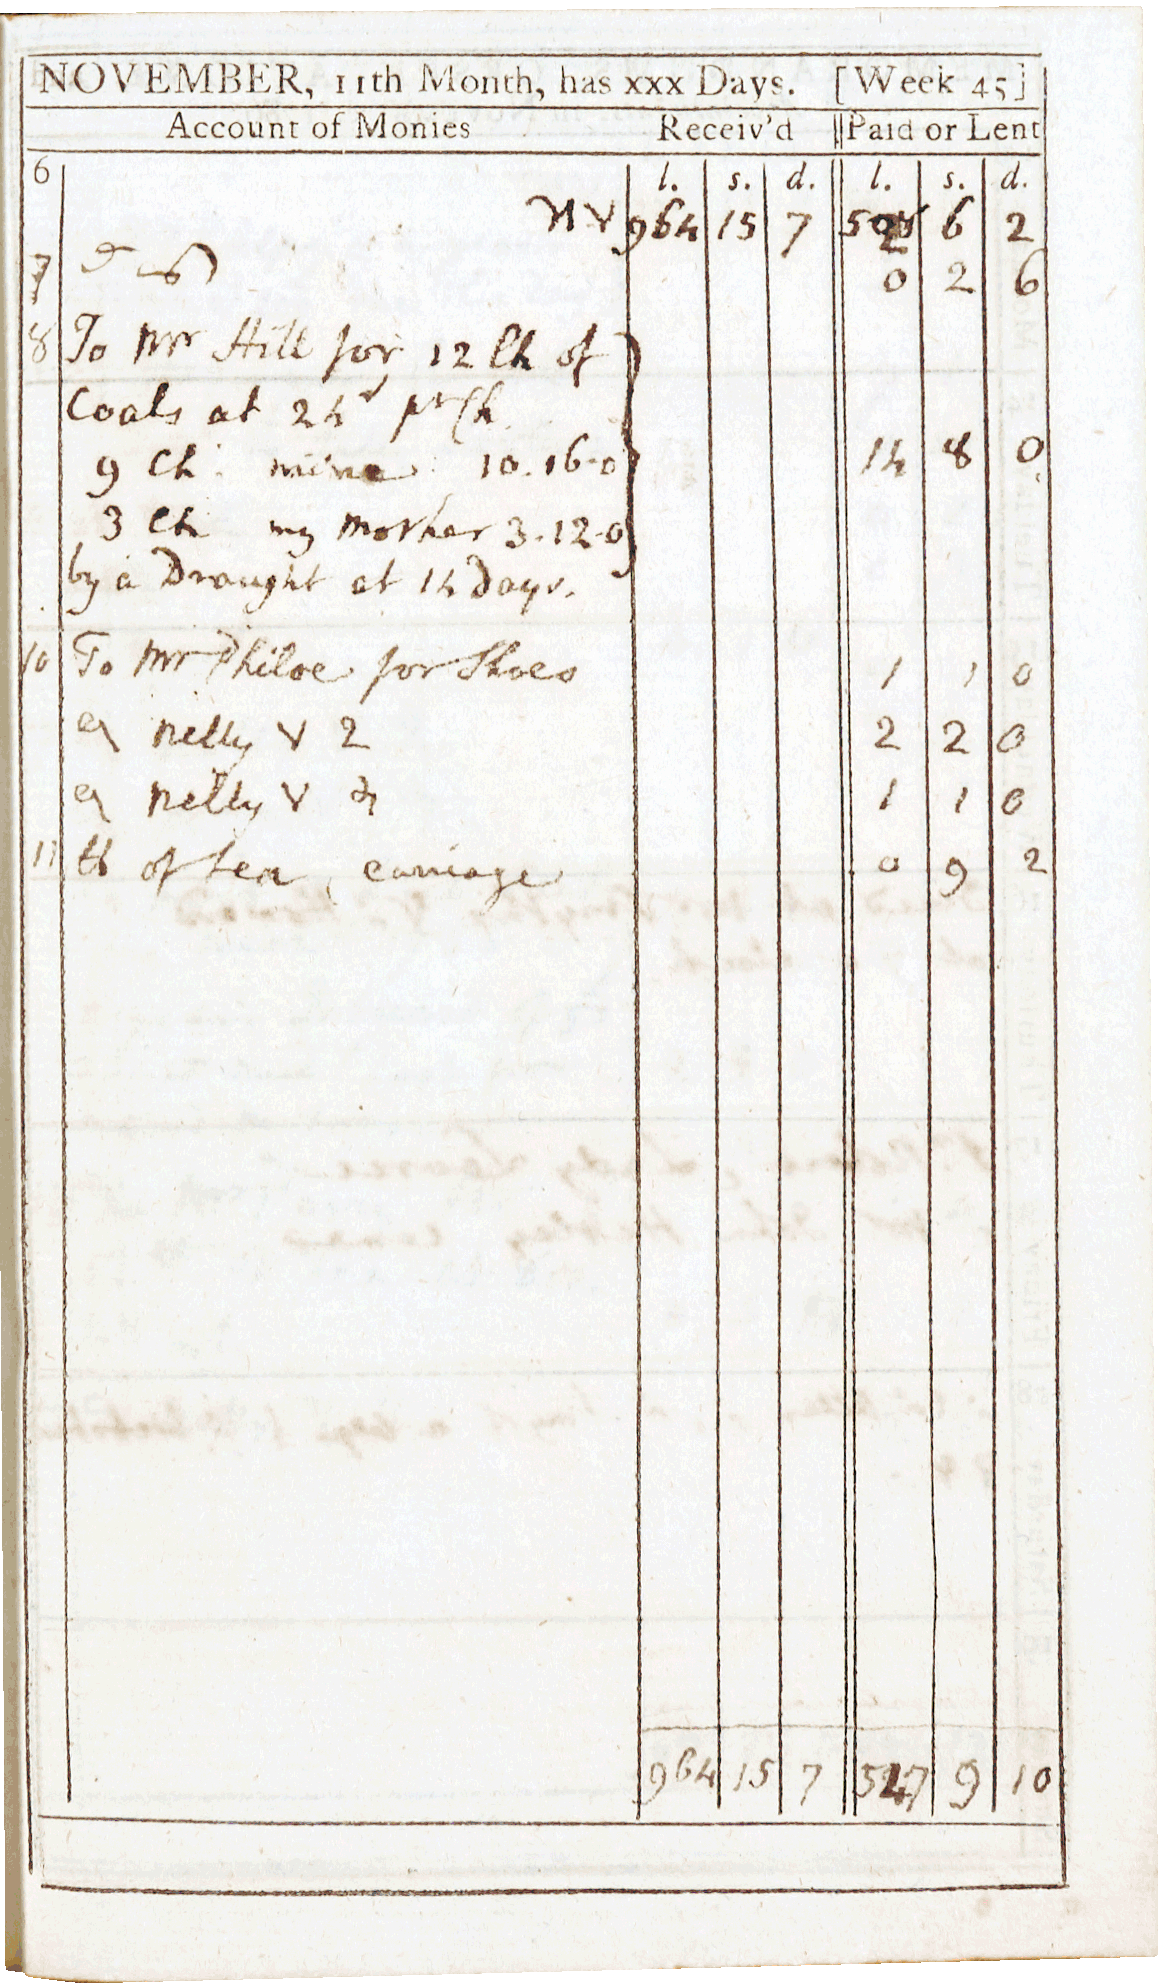 NOVEMBER, 11th Month, has xxx Days. [Week 45]
Account of Monies Receiv'd Paid or Lent
6 l. s. d. l. s. d.
964 15 7 6 2
7 0 2 6
8 To Mr Hill for 12 Ch of
Coals at 24s pr Ch
9 Ch. mine 10.16-0 14 8 0
3 Ch my mother 3-12-0
by a Draught at 14 Days.
10 To Mr Philoe for Shoes 1 1 0
nelly V 2 2 2 0
nelly V 1 1 0
11 of tea, carriage 0 9 2
964 15 7 9 10